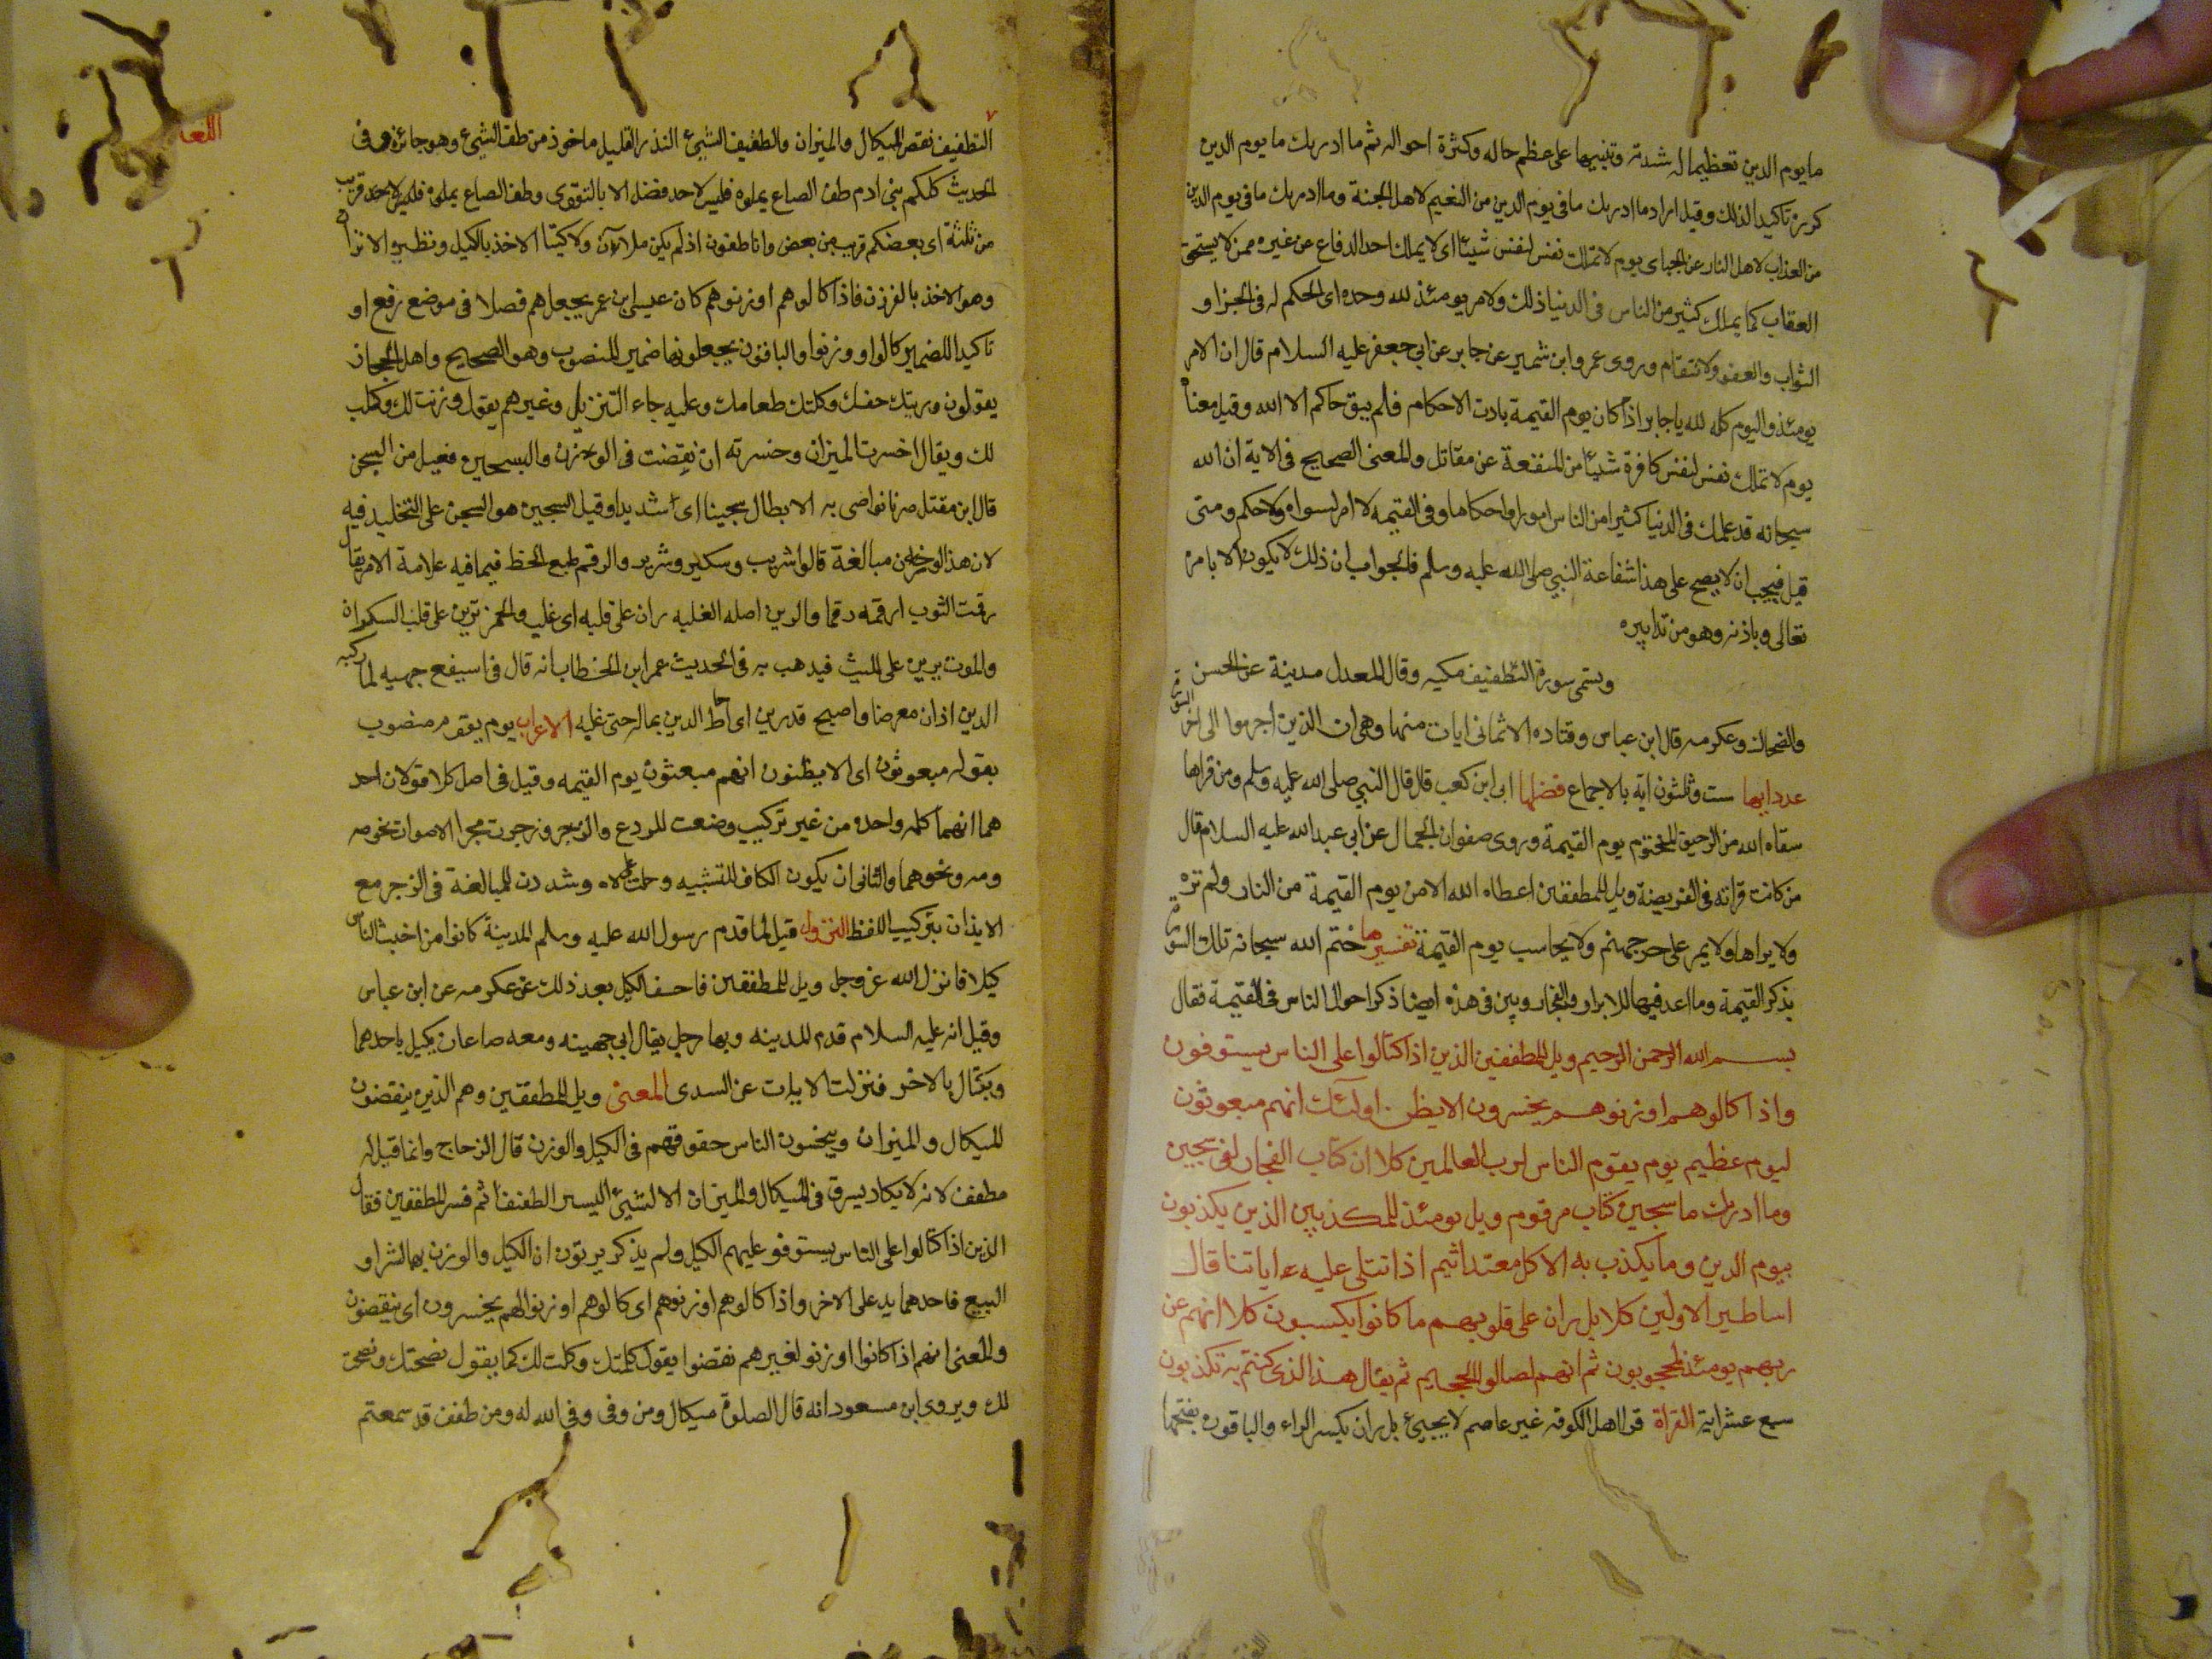 ما يوم الدين تعظيما له شدته وتنبيها على عظم حاله وكثرة احواله ثم ما ادريك ما يوم الدين
كرره تاكيدا لذلك وقيل اراد ما ادريك ما فى يوم الدين من النعيم لاهل الجنة وما ادريك ما فى يوم الدين
من العذاب لاهل النار عن الجباى يوم لا تملك نفس لنفس شيئا اى لا يملك احد الدفاع عن غيره ممن لا يستحق
العقاب كما يملك كثير من الناس فى الدنيا ذلك ولامر يومئذ لله وحده اى الحكم له فى الجزا و
الثواب والعفو ولانتقام وروى عمرو ابن شمير عن جابر عن ابى جعفر عليه السلام قال ان الامر
يومئذ واليوم كله لله يا جابر اذا كان يوم القيمة بادت الاحكام فلم يبق حاكم الا الله وقيل معناه
يوم لا تملك نفس لنفس كافرة شيئا من المنفعة عن مقاتل والمعنى الصحيح فى الاية ان الله
سبحانه قد ملك فى الدنيا كثيرا من الناس امورا واحكاما وفى القيمه لا امر لسواه ولا حكم ومتى
قيل فيجب ان لا يصح على هذا شفاعة النبى صلى الله عليه وسلم فالجواب ان ذلك لا يكون الا بامره
تعالى وباذنه وهو من تدابيره
وتسمى سورة التطفيف مكيه وقال المعدل مدينة عن الحسن
والضحاك وعكرمه قال ابن عباس وقتاده الا ثمانى ايات منها وهى ان الذين اجرموا الى اخر السورة
عدد ايها ست وثلثون اية بالاجماع فضلها ابى ابن كعب قال قال النبى صلى الله عليه وسلم ومن قراها
سقاه الله من الرحيق المختوم يوم القيمة وروى صفوان الجمال عن ابى عبد الله عليه السلام قال
من كانت قراته فى الفريضة ويل للمطففين اعطاه الله الامن يوم القيمة من النار ولم تره
ولا يراها ولا يمر على جسر جهنم ولا يحاسب يوم القيمة تفسيرها ختم الله سبحانه تلك السورة
بذكر القيمة وما اعد فيها للابرار والفجار وبين فى هذه ايضا ذكر احوال الناس فى القيمة فقال
بسم الله الرحمن الرحيم ويل للمطففين الذين اذا كتالوا على الناس يستوفون
واذا كالوهم او زنوهم يخسرون الا يظن اولئك انهم مبعوثون
ليوم عظيم يوم يقوم الناس لرب العالمين كلا ان كتاب الفجار لفى سجين
وما ادريك ما سجين كتاب مرقوم ويل يومئذ للمكذبين الذين يكذبون
بيوم الدين وما يكذب به الا كل معتد اثيم اذا تتلى عليه اياتنا قال
اساطير الاولين كلا بل ران على قلوبهم ما كانوا يكسبون كلا انهم عن
ربهم يومئذ لمحجوبون ثم انهم لصالوا الجحيم ثم يقال هذا الذى كنتم به تكذبون
سبع عشر اية القراة قرا اهل الكوفه غير عاصم لا يحيى بل ران بكسر الراء والباقون بفتحها
اللغة
التطفيف نقص المكيال والميزان والطفيف الشيئ النذر القليل ماخوذ من طف الشيئ وهو جانبه وفى
الحديث كلكم بنى ادم طف الصاع يملوه فليس لاحد فضل الا بالتقوى وطف الصاع يملوه قريب
من ثلثة اى بعضكم قريب من بعض وانا طففون اذ لم يكن ملان ولاكتيا الاخذ بالكيل ونظيره الاتزان
وهو الاخذ بالوزن فاذا كالوهم او زنوهم كان عيسى ابن عمر يجعل هم فصلا فى موضع رفع او
تاكيدا للضمير كالوا ووزنوا والباقون يجعلونها ضمير المنصوب وهو الصحيح واهل الحجاز
يقولون وزنتك حقك وكلتك طعامك وعليه جاء التنزيل وغيرهم يقول وزنت لك وكلت
لك ويقال اخسرت الميزان وخسرته ان نقصت فى الوزن والسجين فعيل من السجن
قال ابن مقبل ضربا تواصى به الابطال سجينا اى شديدا وقيل السجين هو السجن على التخليد فيه
لان هذا الوزن مبالغة قالوا شريب وسكير وشرير والرقم طبع الخط فيما فيه علامة الامر يقال
رقمت الثوب ارقمه رقما والرين اصله الغلبه ران على قلبه اى غلب والخمر ترين على قلب السكران
والموت يرين على الميت فيذهب به فى الحديث عمر ابن الخطاب انه قال فى اسيفع جهينه لما ركبه
الدين ادان معرضا واصبح قد رين اى احاط الدين بماله حتى غلبه الاعراب يوم يقوم منصوب
بقوله مبعوثون اى الا يظنون انهم مبعثون يوم القيمه وقيل فى اصل كلا قولان احد
هما انهما كلمه واحده من غير تركيب وضعت للردع والزجر وزجرت مجرا الاصوات نحو صه
ومه ونحوهما والثانى ان يكون الكاف للتشبيه دخلت على لا وشددت للمبالغة فى الزجر مع
الايذان بتركيب اللفظ النزول قيل لما قدم رسول الله عليه وسلم المدينة كانوا من اخبث الناس
كيلا فانزل الله عز وجل ويل للمطففين فاحسنوا الكيل بعد ذلك عن عكرمه عن ابن عباس
وقيل انه عليه السلام قدم المدينه وبها رجل يقال ابى جهينه ومعه صاعان يكيل باحدهما
ويكتال بالاخر فنزلت الايات عن السدى المعنى ويل للمطففين وهم الذين ينقصون
المكيال والميزان ويبخسون الناس حقوقهم فى الكيل والوزن قال الزجاج وانما قيل له
مطفف لانه لا يكاد يسرق فى المكيال والميزان الا الشيئ اليسير الطفيف ثم فسر المطففين فقال
الذين اذا كتالوا على الناس يستوفو عليهم الكيل ولم يذكر يزنون ان الكيل والوزن بهما الشرا و
البيع فاحدهما يدل على الاخر واذا كالوهم او زنوهم اى كالوهم او زنوا لهم يخسرون اى ينقصون
والمعنى انهم اذا كانوا او زنو لغيرهم نقصوا يقول كلتك وكلت لك كما يقول نصحتك ونصحت
لك ويروى ابن مسعود انه قال الصلوة ميكال ومن وفى وفى الله له ومن طفف قد سمعتم